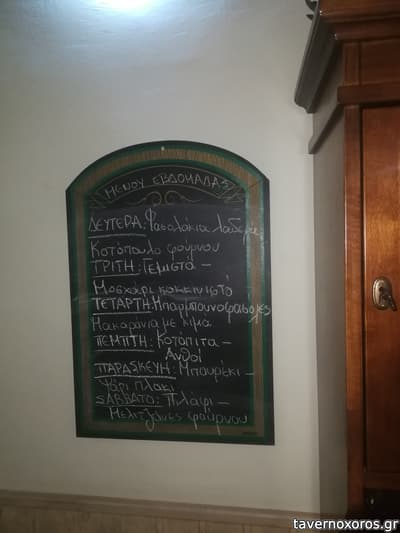 ΜΕΝΟΥ ΕΒΔΟΜΑΔΑΣ
ΔΕΥΤΕΡΑ: Φασολάκια λαδερά
Κοτόπουλο φούρνου
ΤΡΙΤΗ: Γεμιστά -
Μοσχάρι κοκκινιστό
ΤΕΤΑΡΤΗ: Μπαρμπουνοφασολες
Μακαρόνια με κιμα
ΠΕΜΠΤΗ: Κοτόπιτα -
Ανθοί
ΠΑΡΑΣΚΕΥΗ: Μπουρέκι -
Ψάρι πλακί
ΣΑΒΒΑΤΟ: Πιλάφι -
Μελιτζάνες φούρνου
tavernoxoros.gr